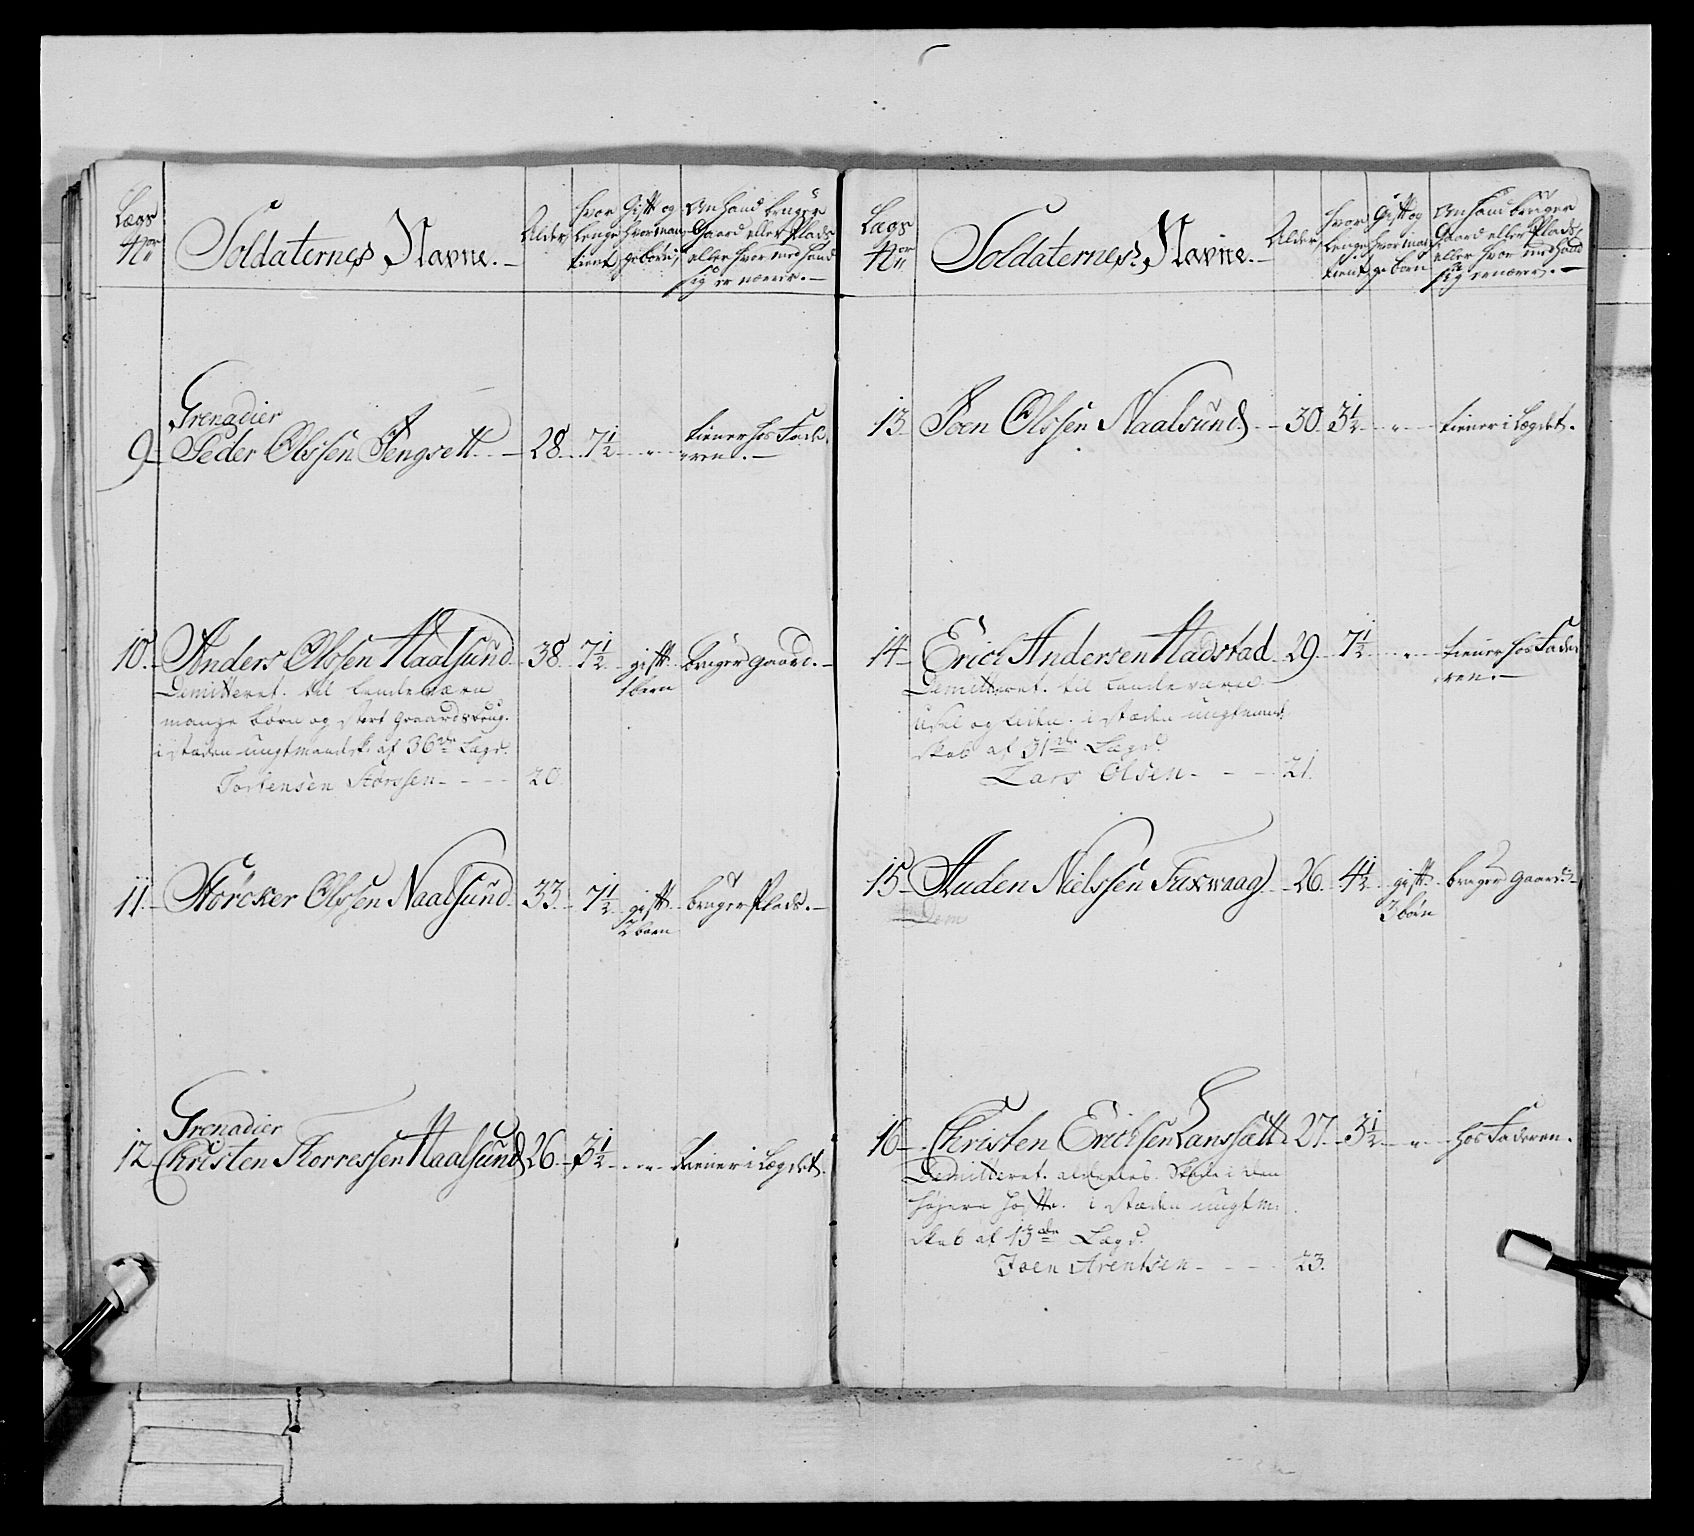 Lægs
Nor
Soldaternes Navne.
Alder
hvor
lenge
tient
Gift og
hvor man-
ge børn
Om hand bruger
Gaard eller Plads
eller hvor med hand
sig ernærer.
Grenadier
9 Peder Olssen Tengsett 28 7 1/2 " tiener hos Fade-
ren.
10 Anders Olssen Naalsund 38 7 1/2 gift bruger gaard.
1 børn
Demitteret til landeværn
mange børn og stort Gaardsbrug.
i stæden ungtmandsk: af 36de Lægd.
Torstensen Størssen 20
11 Størcker Olssen Naalsund 33 7 1/2 gift bruger Plads.
2 børn
Grenadier
12 Christen Storressen Naalsund 26 3 1/2 " tiener i Lægdet.
Lægs
Nor
Soldaternes Navne.
Alder
hvor
lenge
tient
Gift og
hvor man
ge børn
Om hand bruger
Gaard eller Plads,
eller hvor med hand
sig ernærer.
13 Joen Olssen Naalsund 30 3 1/2 " tiener i Lægdet.
14 Erich Andersen Nadstad 29 7 1/2 " tiener hos Fade-
ren.
Demitteret til landeværn
usel og liden. i stæden ungtmand-
skab af 31de Lægd.
Lars Olsen 21
15 Auden Nielssen Fuxwaag 26 4 1/2 gift bruger Gaard.
3 børn
Dem
16 Christen Erichsen Lanssætt 27 3 1/2 " hos Faderen.
Demitteret. aldeeles. Skade i den
højere hofte. i stæden ungtm:
skab af 13de Lægd.
Joen Arentsen 23.